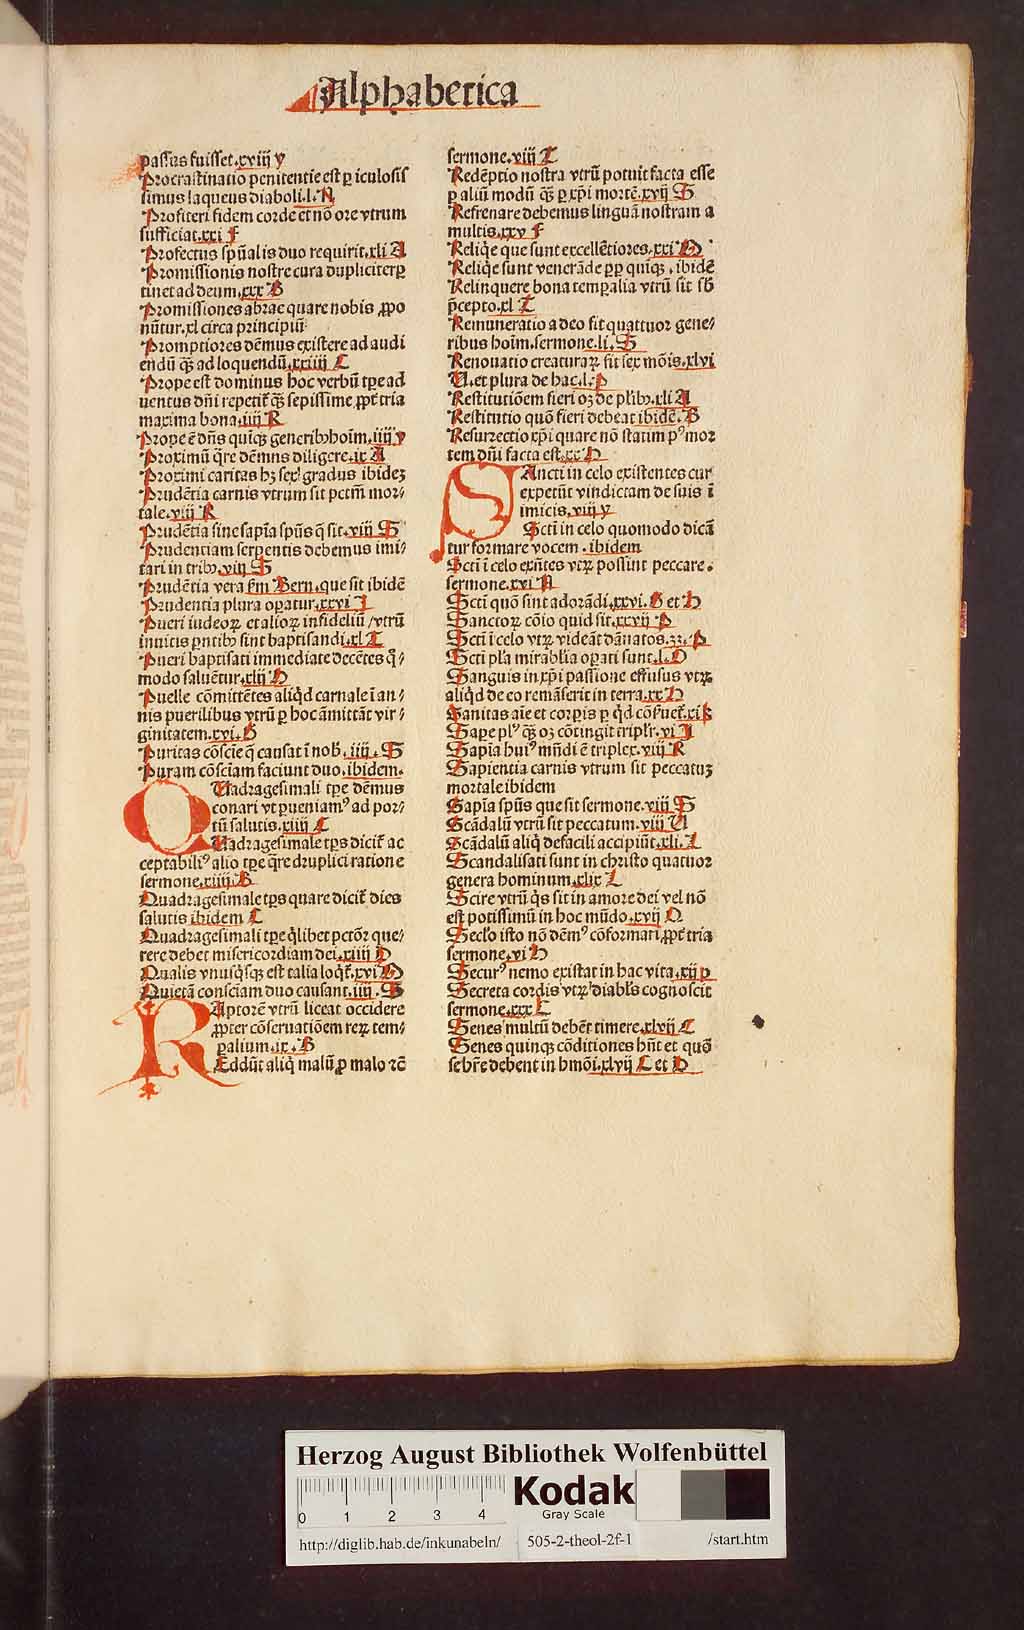 Alphabetica
passus fuisset.xviij y
Procrastinatio penitentie est ꝑ iculosis
simus laqueus diaboli.l.N
Profiteri fidem corde et nō ore vtrum
sufficiat.xxi F
Profectus spūalis duo requirit.xli A
Promissionis nostre cura dupliciterꝑ
tinet ad deum.xxx B
Promissiones abrae quare nobis ꝓpo
nūtur.xl circa principiū
Promptiores dēmus existere ad audi
endū qȝ ad loquendū.xxiiij C
Prope est dominus hoc verbū tꝑe ad
uentus dñi repetit̄ qȝ sepissime ꝓpt̄ tria
maxima bona.iiij R
Prope ē dñs quinqȝ generibꝰ hoīm.iiij y
Proximū q̄re dēmus diligere.ix A
Proximi caritas hȝ sex gradus ibideȝ
Prudētia carnis vtrum sit petm̄ mor⸗
tale.viij R
Prudētia sine sapīa spūs q̄ sit.viij S
Prudentiam serpentis debemus imi⸗
tari in tribꝰ.viij S
Prudētia vera fm̄ Bern.que sit ibidē
Prudentia plura oꝑatur.xxvi I
Pueri iudeoꝝ et alioꝝ infideliū/vtrū
inuitis pn̄tibꝰ sint baptisandi.xl T
Pueri baptisati immediate decētes q̄⸗
modo saluētur.xlij H
Puelle cōmittētes aliq̄d carnale ī an⸗
nis puerilibus vtrū ꝑ hoc āmittāt vir⸗
ginitatem.xvi.G
Puritas cōscīe q̄ causat ī nob̄.iiij.S
Puram cōsciam faciunt duo.ibidem.
QUadragesimali tꝑe dēmus
conari vt ꝑueniamꝰ ad por⸗
tū salutis.xliij C
Quadragesimale tꝑs dicit̄ ac
ceptabiliꝰ alio tꝑe q̄re druplici ratione
sermone.xiiij.B
Quadragesimale tꝑs quare dicit̄ dies
salutis ibidem C
Quadragesimali tꝑe q̄libet pctōr que⸗
rere debet misericordiam dei.xiiij D
Qualis vnusq̄sqȝ est talia loq̄t̄.xvi M
Quietā consciam duo causant.iiij.S
RAptorē vtrū liceat occidere
ꝓpter cōseruatiōem reꝝ tem⸗
ꝑalium.ix.B
REddūt aliq̄ malū ꝓ malo ⁊c̄
sermone.viij T
Redēptio nostra vtrū potuit facta esse
ꝑ aliū modū qȝ ꝑ xp̄i mortē.xvij S
Refrenare debemus linguā nostram a
multis.xxv F
Reliq̄e que sunt excellētiores.xxi M
Reliq̄e sunt venerāde ꝑp quīqȝ.ibidē
Relinquere bona temꝑalia vtrū sit sb̄
p̄cepto.xl T
Remuneratio a deo fit quattuor gene⸗
ribus hoīm.sermone.li.S
Renouatio creaturaꝝ fit sex mōis.xlvi
U.et plura de hac.l.p
Restitutiōem fieri oȝ de plʼibꝰ.xli A
Restitutio quō fieri debeat ibidē.B
Resurrectio xp̄i quare nō statim pꝰ mor
tem dñi facta est.xx H
SAncti in celo existentes cur
expetūt vindictam de suis ī
imicis.viij y
Scti in celo quomodo dicā
tur formare vocem.ibidem
Scti ī celo exn̄tes vtꝝ possint peccare.
sermone.xxi N
Scti quō sint adorādi.xxvi.G et H
Sanctoꝝ cōio quid sit.xxvij P
Scti ī celo vtꝝ videāt dānatos.33.P
Scti plʼa mirabʼlia oꝑati sunt.l.O
Sanguis in xp̄i passione effusus vtꝝ
aliq̄d de eo remāserit in terra.xx H
Sanitas aīe et corꝑis ꝑ q̄d cōsuet̄.xi R
Sape plꝰ qȝ oȝ cōtingit triplʼr.vi I
Sapīa huiꝰ mūdi ē triplex.viij R
Sapientia carnis vtrum sit peccatuȝ
mortale ibidem
Sapīa spūs que sit sermone.viij S
Scādalū vtrū sit peccatum.viij U
Scādalū aliq̄ defacili accipiūt.xli.L
Scandalisati sunt in christo quatuor
genera hominum.xlix L
Scire vtrū q̄s sit in amore dei vel nō
est potissimū in hoc mūdo.xvij O
Seclʼo isto nō dēmꝰ cōformari ꝓpt̄ tria
sermone.vi H
Securꝰ nemo existat in hac vita.xij p
Secreta cordis vtꝝ diablʼs cognoscit
sermone.xxx E
Senes multū debēt timere.xlvij C
Senes quinqȝ cōditiones hn̄t et quō
se hr̄e debent in hmōi.xlvij C et D
Herzog August Bibliothek Wolfenbüttel
0 1 2 3 4
Kodak
Gray Scale
http://diglib.hab.de/inkunabeln/ 505-2-theol-2f-1 /start.htm